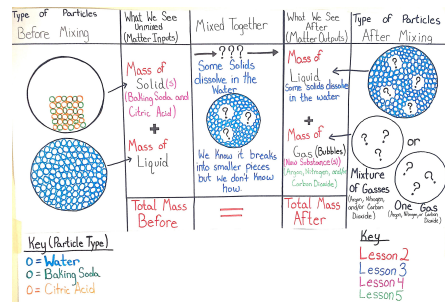 Type of Particles
Before Mixing
What We See
Unmixed
(Matter Inputs)
Mixed Together
What We See
After
(Matter Outputs)
Type of Particles
After Mixing
Mass of
Solid(s)
(Baking Soda and
Citric Acid)
+
Mass of
Liquid
???
Some Solids
dissolve in the
Water
? ? ?
We Know it breaks
into smaller pieces
but we don't know
how.
Mass of
Liquid
Some solids dissolve
in the water
+
Mass of
Gas (Bubbles)
New Substance(s)
(Argon, Nitrogen, and/or
Carbon Dioxide)
? ? ?
? ? ?
or
? ? ?
Mixture
of Gasses
(Argon, Nitrogen,
and/or Carbon
Dioxide)
One Gas
(Argon, Nitrogen, or Carbon
Dioxide)
Total Mass
Before
=
Total Mass
After
Key (Particle Type)
O = Water
O = Baking Soda
O = Citric Acid
Key
Lesson 2
Lesson 3
Lesson 4
Lesson 5